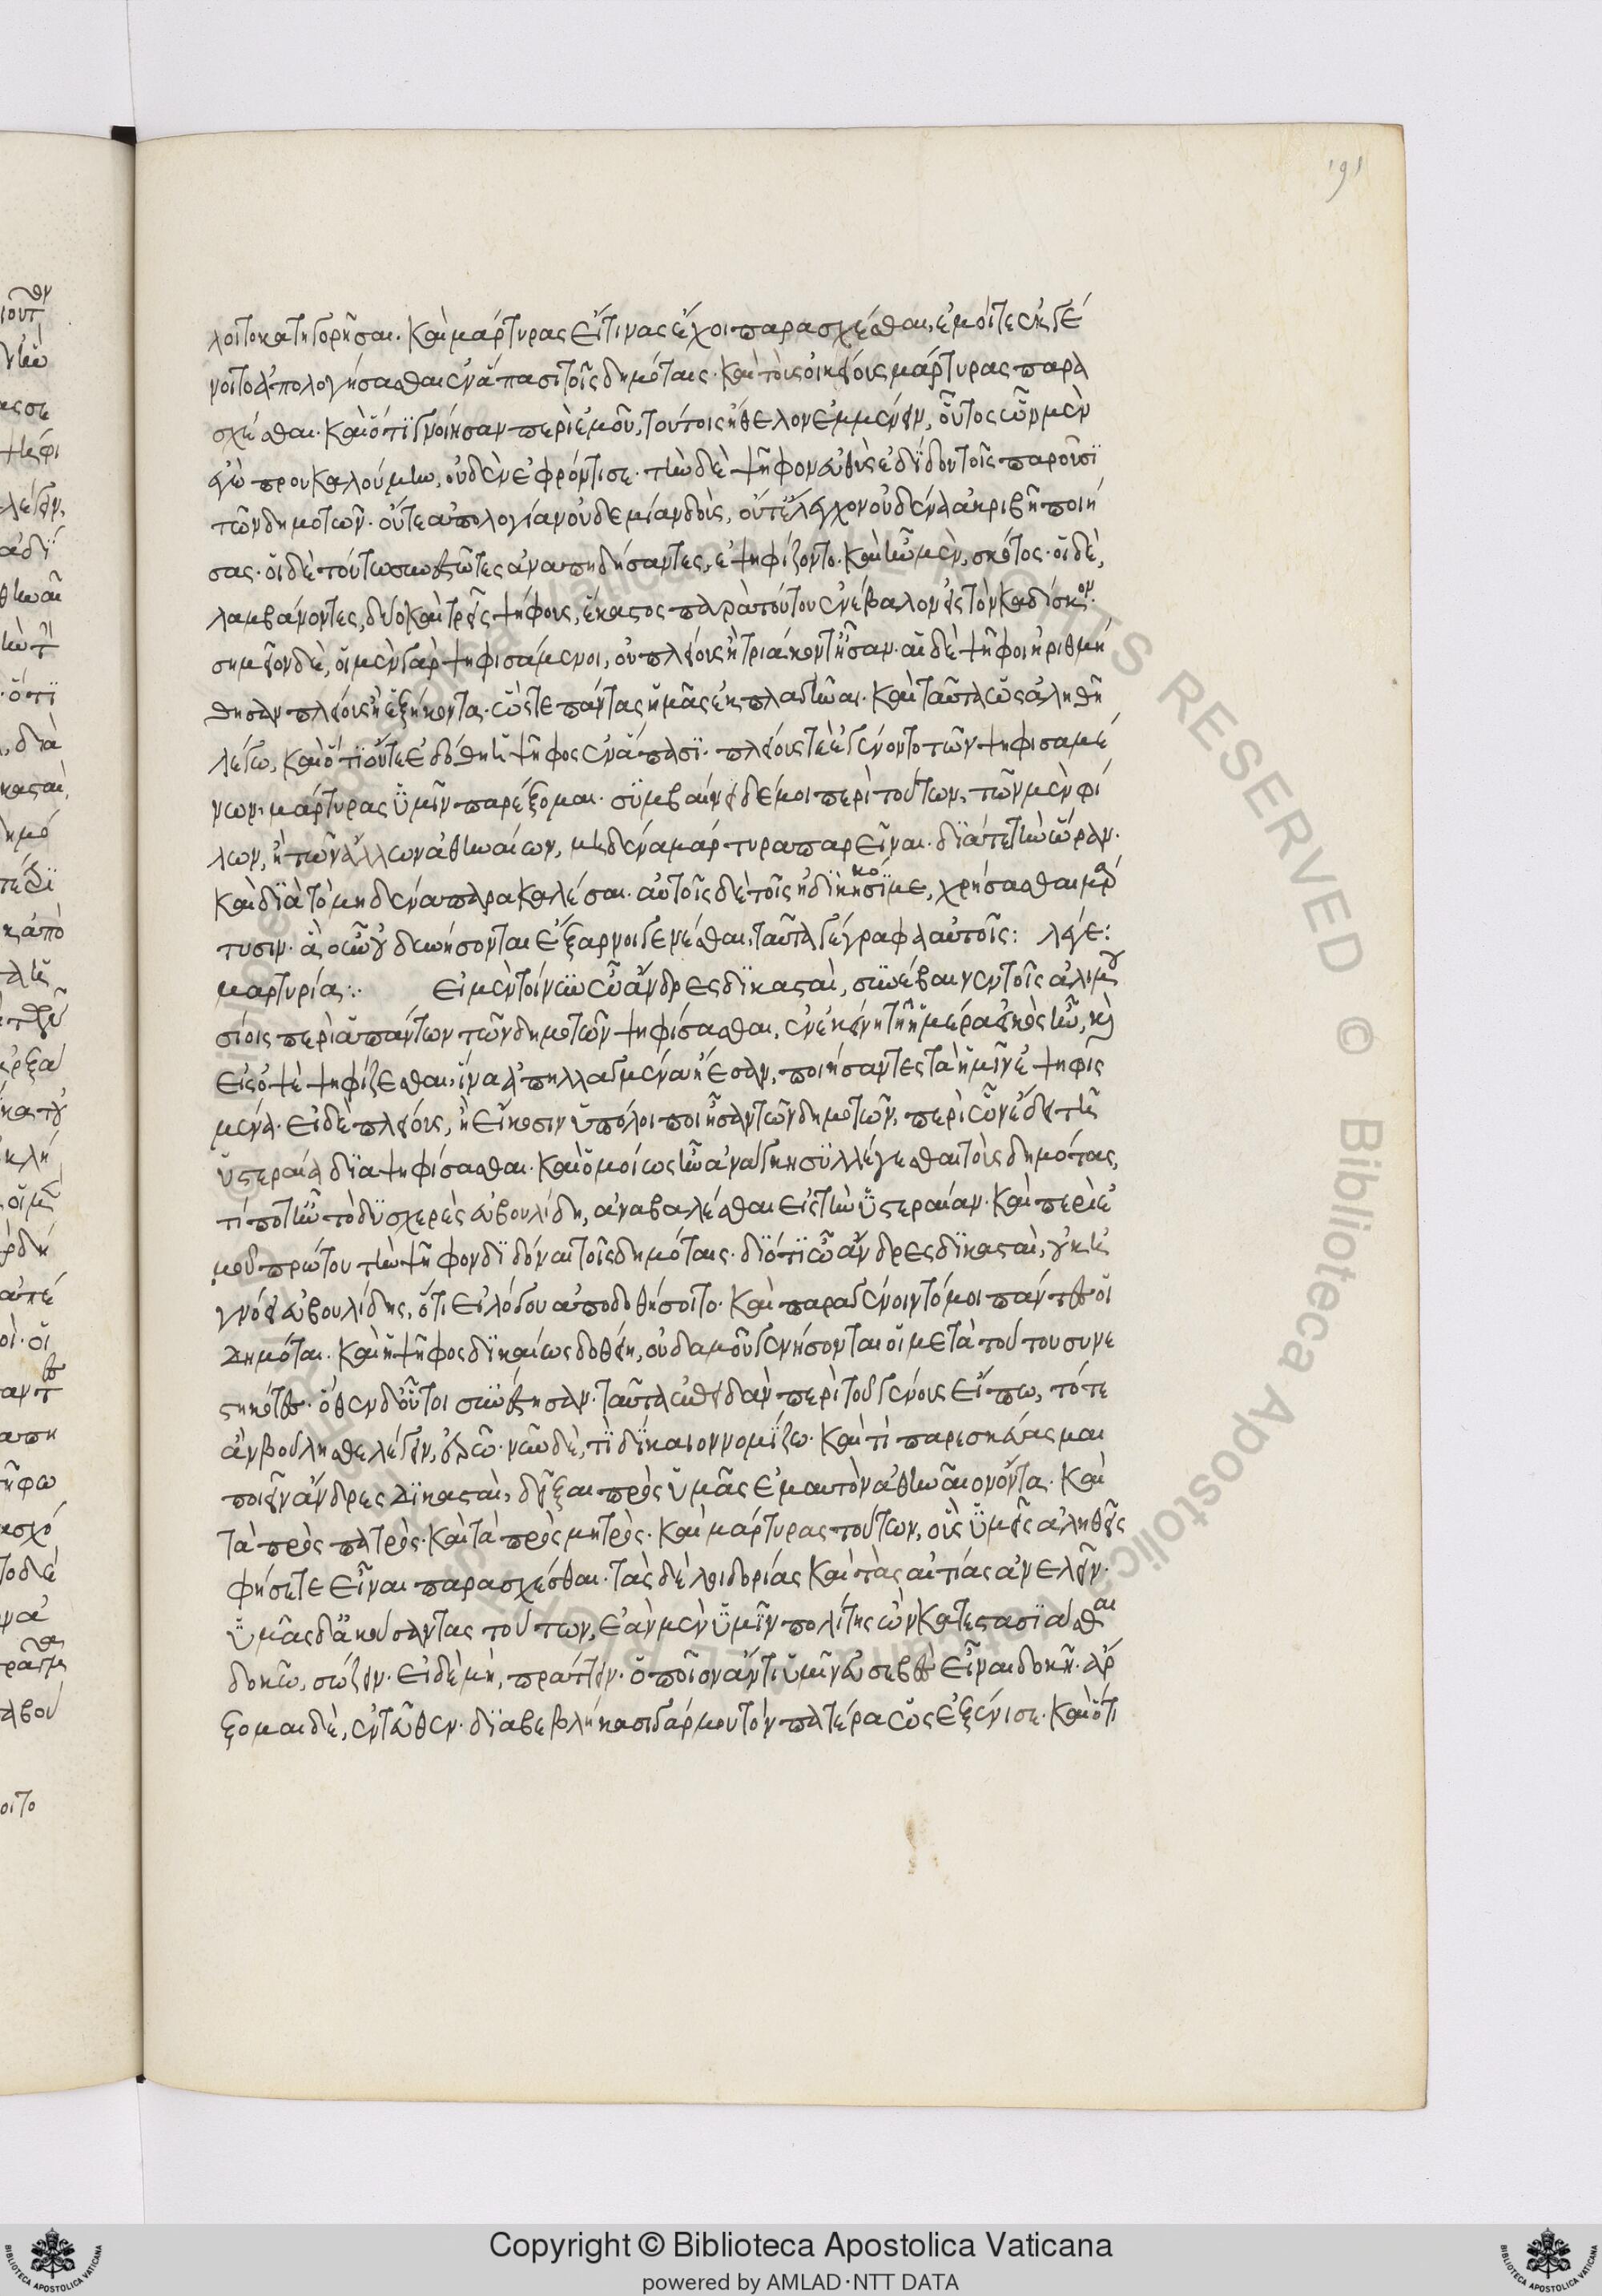 191
λοιτο κατηγορῆσαι. καὶ μάρτυρας εἴ τινας ἔχοι παρασχέσθαι, ἐμοί τε ἐκγέ
νοιτο ἀπολογήσασθαι ἐν ἅπασι τοῖς δημόταις. καὶ τοὺς οἰκείους μάρτυρας παρα
σχέσθαι. καὶ ὅ,τι γνοίησαν περὶ ἐμοῦ, τούτοις ἤθελον ἐμμένειν, οὗτος ὧν μὲν
ἐγὼ προυκαλούμην, οὐδὲν ἐφρόντισε. τὴν δὲ ψῆφον εὐθὺς ἐδίδου τοῖς παροῦσι
τῶν δημοτῶν. οὔτε ἀπολογίαν οὐδεμίαν δοὺς, οὔτ' ἔλεγχον οὐδένα ἀκριβῆ ποιή
σας. οἱ δὲ τούτω συνεστῶτες ἀναπηδήσαντες, ἐψηφίζοντο. καὶ ἦν μὲν, σκότος. οἱ δὲ,
λαμβάνοντες, δύο καὶ τρεῖς ψήφους, ἕκαστος παρὰ τούτου ἐνέβαλον εἰς τὸν καδίσκον.
σημεῖον δὲ, οἱ μὲν γὰρ ψηφισάμενοι, οὐ πλείους ἢ τριάκοντ' ἦσαν. αἱ δὲ ψῆφοι ἠριθμή
θησαν πλείους ἢ ἑξήκοντα. ὥστε πάντας ἡμᾶς ἐκπλαγῆναι. καὶ ταῦτα ὡς ἀληθῆ
λέγω, καὶ ὅτι οὔτε ἐδόθη ἡ ψῆφος ἐν ἅπασι. πλείους τε ἐγένοντο τῶν ψηφισαμέ
νων, μάρτυρας ὑμῖν παρέξομαι. συμβαίνει δέ μοι περὶ τούτων, τῶν μὲν φί
λων, ἢ τῶν ἄλλων ἀθηναίων, μηδένα μάρτυρα παρεῖναι. διά τε τὴν ὥραν.
καὶ διὰ τὸ μηδένα παρακαλέσαι. αὐτοῖς δὲ τοῖς ἠδικηκόσι με, χρήσασθαι μάρ
τυσιν. ἃ οὖν οὐ δυνήσονται ἔξαρνοι γενέσθαι, ταῦτα γέγραφα αὐτοῖς: λέγε:
μαρτυρία:· εἰ μὲν τοίνυν ὦ ἄνδρες δικασταὶ, συνέβαινεν τοῖς ἁλιμου
σίοις περὶ ἁπάντων τῶν δημοτῶν ψηφίσασθαι, ἐν ἐκείνη τῆ ἡμέρα εἰκὸς ἦν, καὶ
εἰς ὀψὲ ψηφίζεσθαι, ἵνα ἀπηλλαγμένοι ἦσαν, ποιήσαντες τὰ ὑμῖν ἐψηφις
μένα. εἰ δὲ πλείους, ἢ εἴκοσιν ὑπόλοιποι ἦσαν τῶν δημοτῶν, περὶ ὧν ἔδει τῆ
ὑστεραία διαψηφίσασθαι. καὶ ὁμοίως ἦν ἀνάγκη συλλέγεσθαι τοὺς δημότας,
τί ποτ' ἦν τὸ δυσχερὲς εὐβουλίδη, ἀναβαλέσθαι εἰς τὴν ὑστεραίαν. καὶ περὶ ἐ
μοῦ πρώτου τὴν ψῆφον διδόναι τοῖς δημόταις. διότι ὦ ἄνδρες δικασταὶ, οὐκ ἠ
γνόει εὐβουλίδης, ὅτι εἰ λόγου ἀποδοθήσοιτο. καὶ παραγένοιντό μοι πάντες οἱ
δημόται. καὶ ἡ ψῆφος δικαίως δοθείη, οὐδαμοῦ γενήσονται οἱ μετὰ τούτου συνε
στηκότες. ὅθεν δ' οὗτοι συνέστησαν. ταῦτα ἐπειδὰν περὶ τοῦ γένους εἴπω, τότε
ἂν βούλησθε λέγειν, ἐρῶ. νῦν δὲ, τί δίκαιον νομίζω. καὶ τί παρεσκεύασμαι
ποιεῖν ἄνδρες δικασταὶ, δεῖξαι πρὸς ὑμᾶς ἐμαυτὸν ἀθηναῖον ὄντα. καὶ
τὰ πρὸς πατρὸς. καὶ τὰ πρὸς μητρὸς. καὶ μάρτυρας τούτων, οὓς ὑμεῖς ἀληθεῖς
φήσετε εἶναι παρασχέσθαι. τὰς δὲ λοιδορίας καὶ τὰς αἰτίας ἀνελεῖν.
ὑμᾶς δ' ἀκούσαντας τούτων, ἐὰν μὲν ὑμῖν πολίτης ὢν κατεστασιάσθαι
δοκῶ, σώζειν. εἰ δὲ μὴ, πράττειν. ὁποῖον ἄν τι ὑμῖν εὐσεβὲς εἶναι δοκῆ. ἄρ
ξομαι δὲ, ἐντεῦθεν. διαβεβλήκασι γάρ μου τὸν πατέρα ὡς ἐξένισε. καὶ ὅτι
Copyright © Biblioteca Apostolica Vaticana
powered by AMLAD·NTT DATA